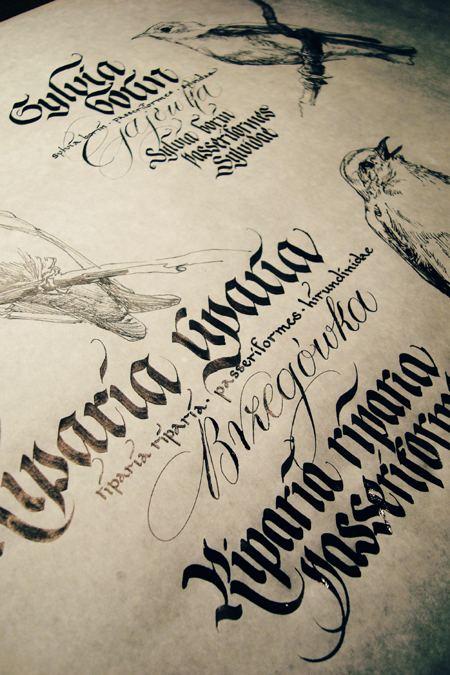 Sylvia
borin
sylvia borin · passeriformes · sylvidae
Gajówka
Sylvia borin
passeriformes
Sylvidae
Riparia riparia
riparia riparia · passeriformes · hirundinidae
Brzegówka
Riparia riparia
passeriform